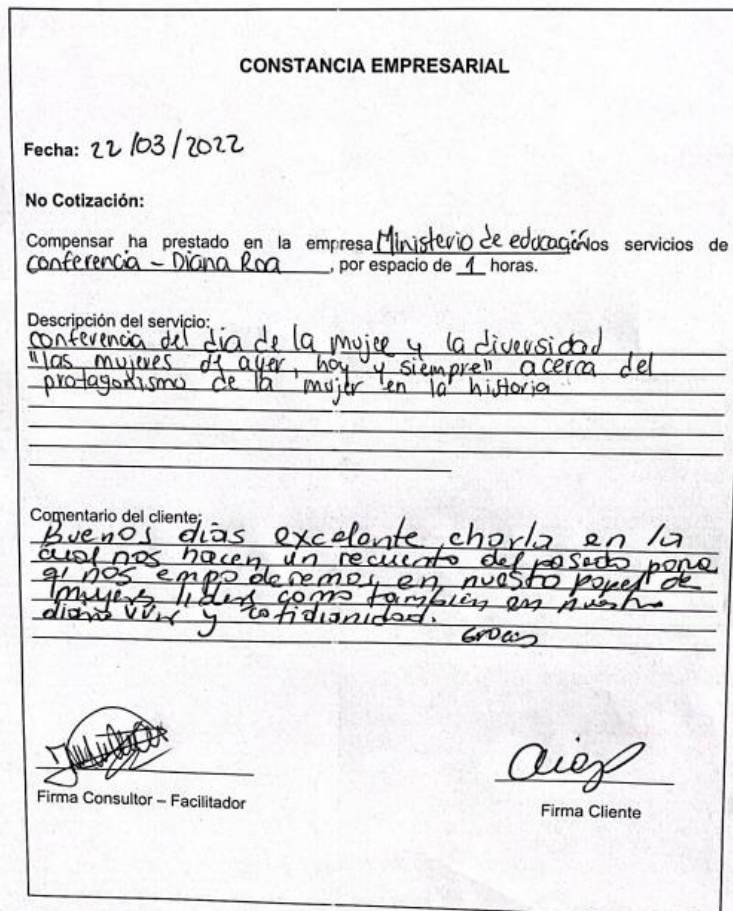 CONSTANCIA EMPRESARIAL
Fecha: 22/03/2022
No Cotización:
Compensar ha prestado en la empresa Ministerio de educación los servicios de
conferencia - Diana Roa, por espacio de 1 horas.
Descripción del servicio:
conferencia del dia de la mujer y la diversidad
"las mujeres de ayer, hoy y siempre" acerca del
protagonismo de la mujer en la historia
Comentario del cliente:
Buenos días excelente charla en la
cual nos hacen un recuento del pasado para
q' nos empoderemos en nuestro papel de
mujeres lideres como tambien en nuestro
diario vivir y cotidianidad.
Gracias
Firma Consultor – Facilitador
Firma Cliente